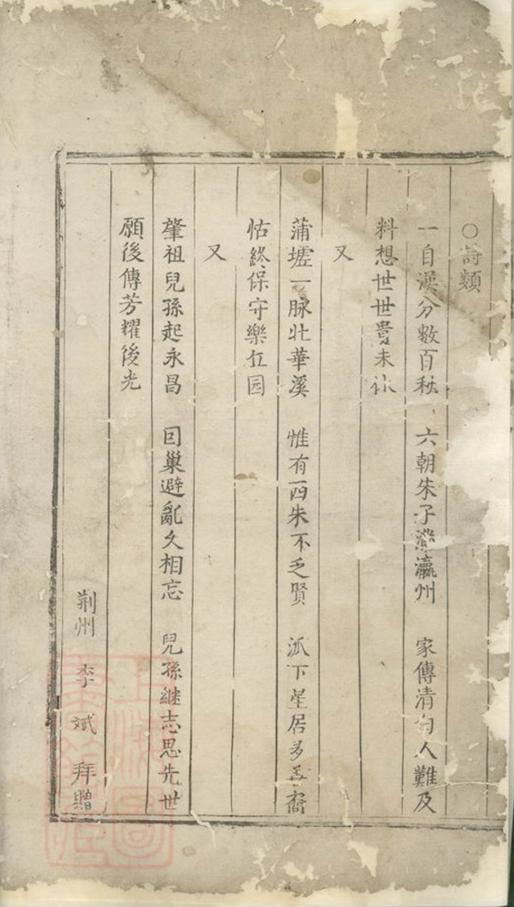 ○詩類
一自漢分數百秋 六朝朱子瀛州 家傳清白人難及
料想世世貴未休
又
蒲墟一脉壯華溪 惟有四朱不乏賢 派下星居多
怙終保守樂丘园
又
肇祖兒孫起永昌 因巢避亂久相忘 兒孫継志思先世
願後傳芳耀後光
荆州 李斌 拜贈